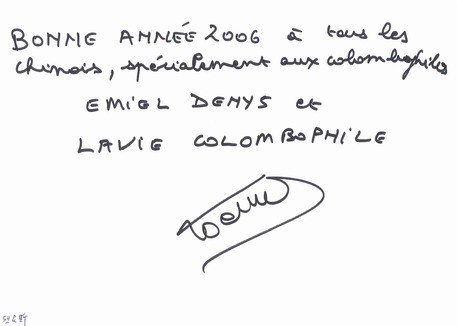 BONNE ANNÉE 2006 à tous les
chinois, spécialement aux colombophiles
EMIEL DENYS et
LAVIE COLOMBOPHILE